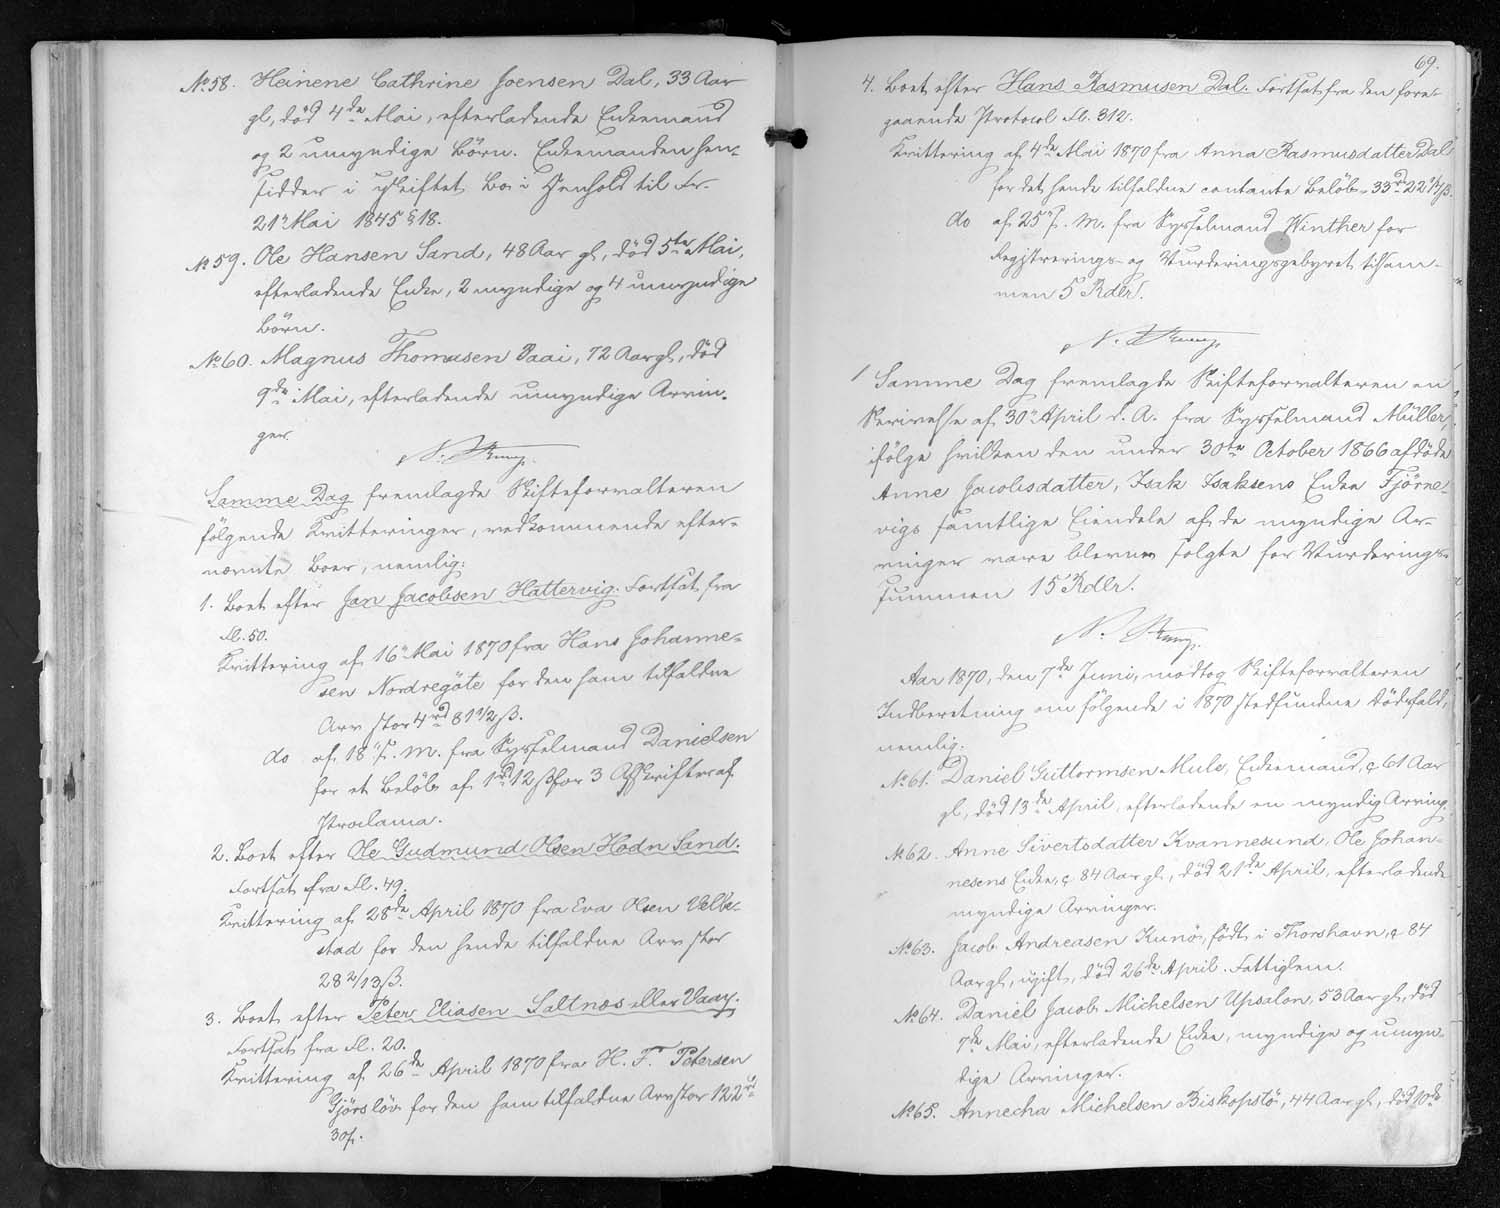 No 58. Heinene Cathrine Joensen Dal, 33 Aar
gl, død 4de Mai, efterladende Enkemand
og 2 umyndige Börn. Enkemanden hen-
sidder i uskiftet Bo i Henhold til Fr.
21n Mai 1845 § 18.
No 59. Ole Hansen Sand, 48 Aar gl, död 5te Mai,
efterladende Enke, 2 myndige og 4 umyndige
Börn.
No 60. Magnus Thomasen Paai, 72 Aar gl, död
9de Mai, efterladende umyndige Arvin-
ger.
Samme Dag fremlagde Skifteforvalteren
fölgende Kvitteringer, vedkommende efter-
nævnte Boer, nemlig:
1. Boet efter Jan Jacobsen Hattervig. Fortsat fra
Fl. 50.
Kvittering af 16n Mai 1870 fra Hans Johanne-
sen Nordregöte for den ham tilfaldne
Arv stor 4rd 81 1/2 ß.
do af 18n s. M. fra Sysselmand Danielsen
for et Belöb af 1rd 12 ß for 3 Afskrifter af
Proclama.
2. Boet efter Ole Gudmund Olsen Hodn Sand.
Fortsat fra Fl. 49.
Kvittering af 28de April 1870 fra Eva Olsen Velbe-
stad for den hende tilfaldne Arv stor
28 2/13 ß.
3. Boet efter Peter Eliasen Saltnæs eller Vaay.
Fortsat fra Fl. 20.
Kvittering af 26de April 1870 fra H. F. Petersen
Gjörslöv for den ham tilfaldne Arv stor 122rd
30 ß.
69.
4. Boet efter Hans Rasmusen Dal. Fortsat fra den fore-
gaaende Protocol Fl. 312.
Kvittering af 4de Mai 1870 fra Anna Rasmusdatter Dal
for det hende tilfaldne contante Belöb 33rd 22
do af 25n s. M. fra Sysselmand Winther for
Registrerings- og Vurderingsgebyret tilsam-
men 5 Rdlr.
1 Samme Dag fremlagde Skifteforvalteren en
Skrivelse af 30n April d. A. fra Sysselmand Müller,
ifölge hvilken den under 30te October 1866 afdöde
Anne Jacobsdatter, Isak Isaksens Enke Tjörne-
vigs samtlige Eiendele af de myndige Ar-
vinger vare blevne solgte for Vurderings-
summen 15 Rdlr.
Aar 1870, den 7de Juni, modtog Skifteforvalteren
Indberetning om fölgende i 1870 stedfundne Dödsfald,
nemlig:
No 61. Daniel Guttormsen Mule, Enkemand, c 61 Aar
gl, död 13de April, efterladende en myndig Arving.
No 62. Anne Sivertsdatter Kvannesund, Ole Johan-
nesens Enke, c 84 Aar gl, död 21de April, efterladende
myndige Arvinger.
No 63. Jacob Andreasen Kunö, födt i Thorshavn, c 84
Aar gl, ugift, död 26de April. Fattiglem.
No 64. Daniel Jacob Michelsen Upsalon, 53 Aar gl, död
7de Mai, efterladende Enke, myndige og umyn-
dige Arvinger.
No 65. Annecha Michelsen Biskopstö, 44 Aar gl, död 10de